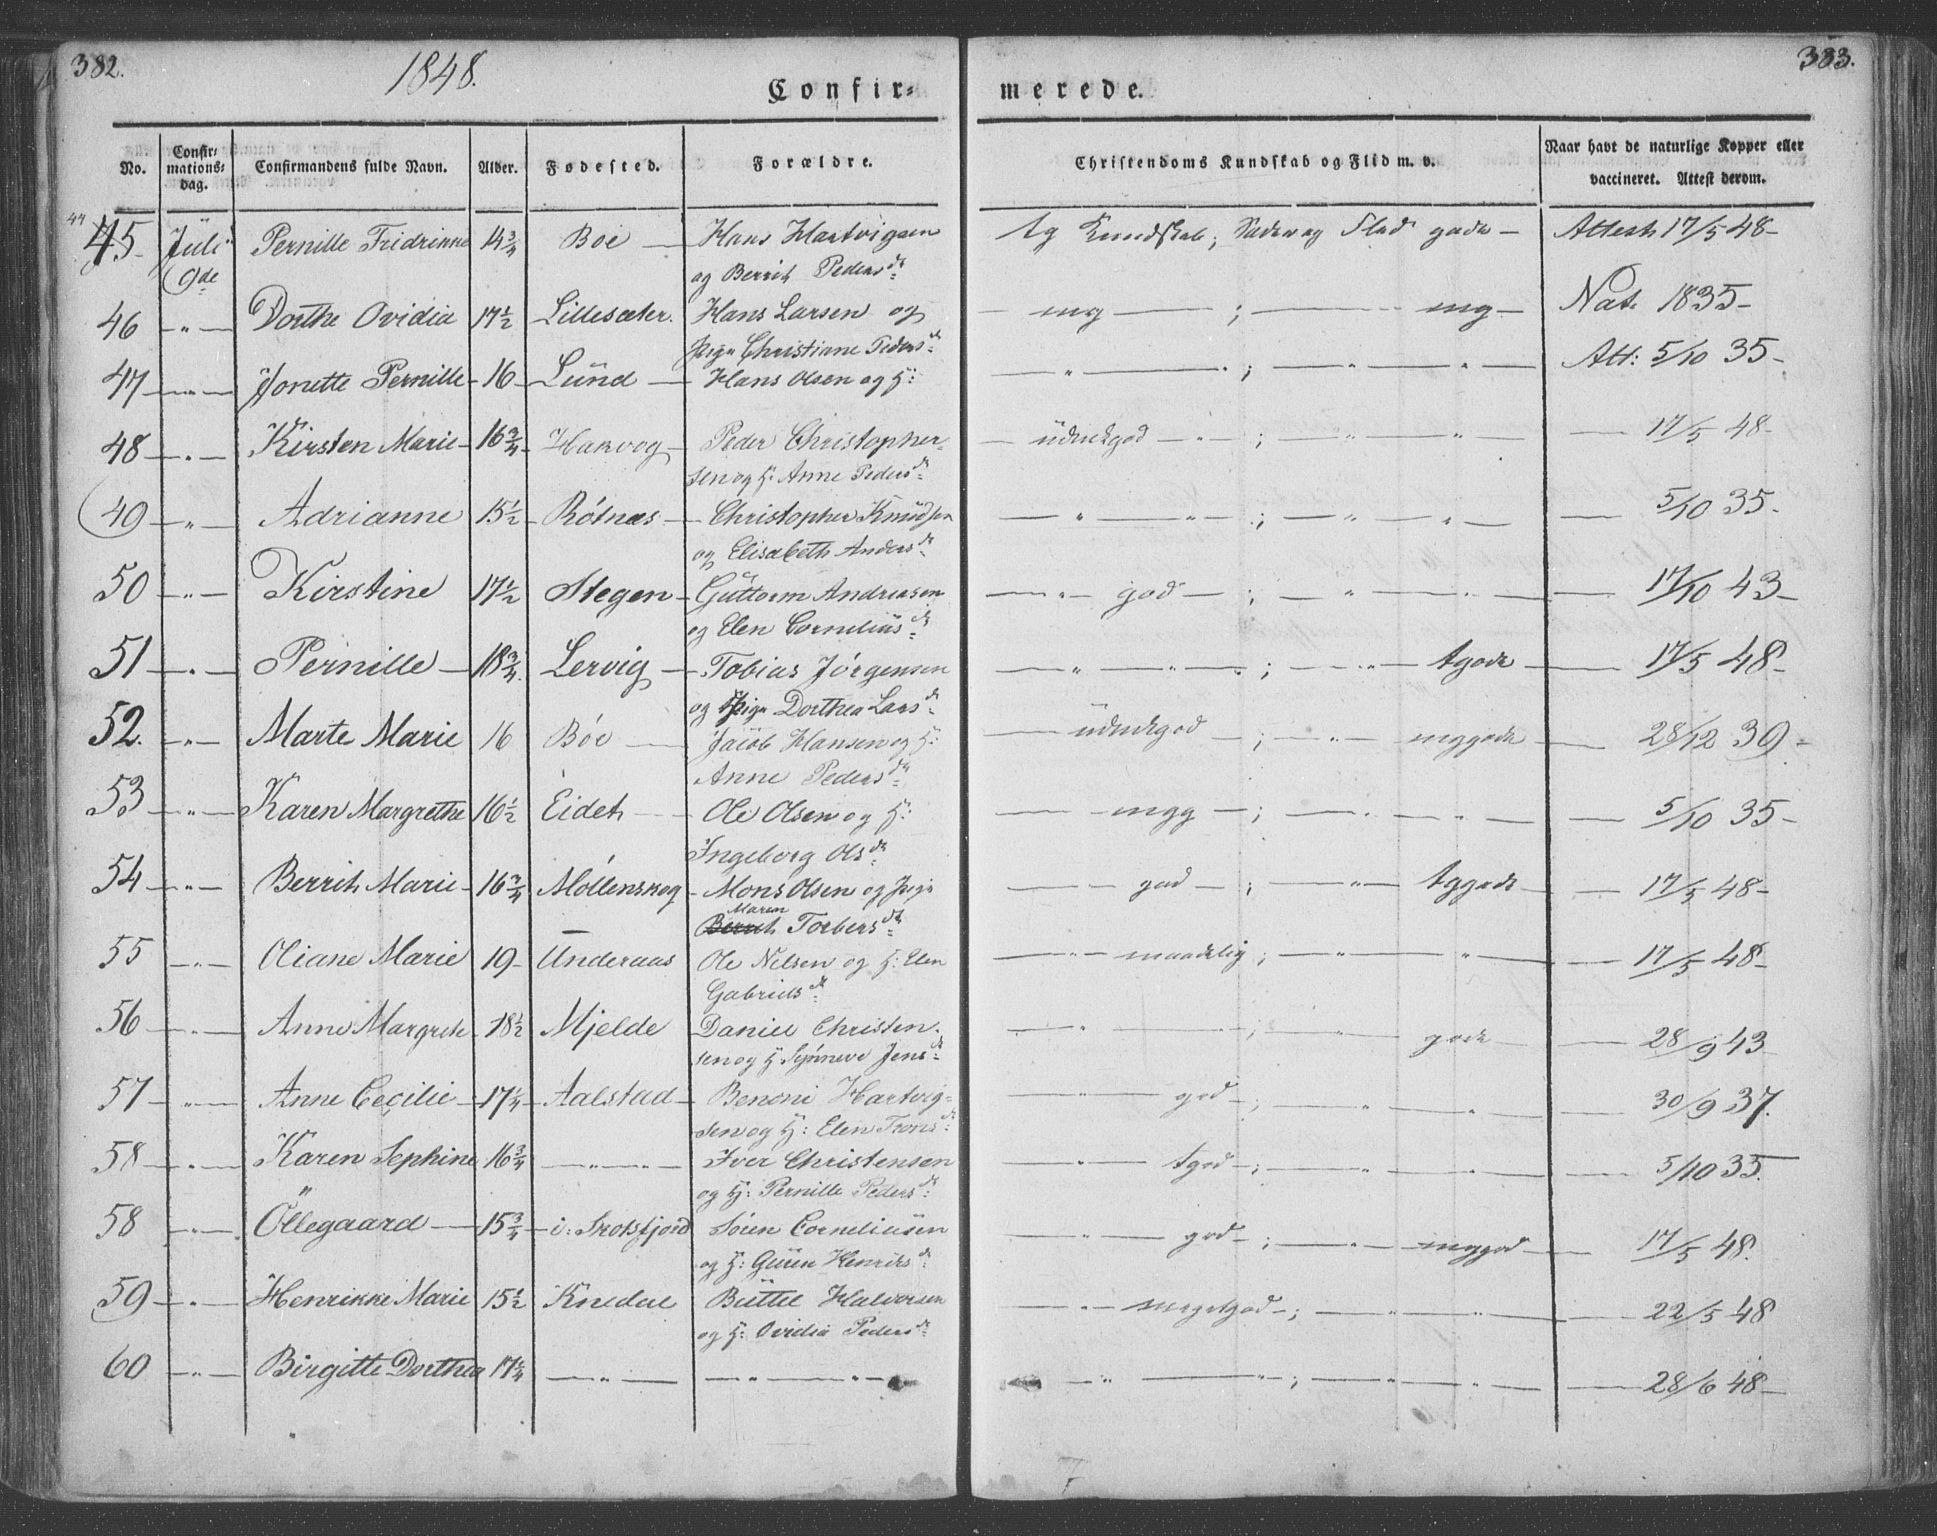 382.
1848.
Confir-
merede.
383.
No.
Confir-
mations-
dag.
Confirmandens fulde Navn.
Alder.
Fødested.
Forældre.
Christendoms Kundskab og Flid m. v.
Naar havt de naturlige Kopper eller
vaccineret. Attest derom.
44
45 Juli Pernille Fridrikke 14 3/4 Boe — Hans Hartvigsen tg Kundskab; Sæder og Flid gode — Attest 17/5 48 -
9de og Berrit Pedersdr
46 — " — Dorthe Ovidia 17 1/2 Lillesæter. Hans Larsen og — mg — ; — mg — Nat. 1835 -
Pige Christiane Pedersdr
47 — " — Jonette Pernille 16 — Lund — Hans Olsen og H: — " — " — ; — " — " — " — Att: 5/10 35 -
48 — " — Kirsten Marie 16 3/4 Hakvog — Peder Christopher- — udmgod — " — ; " — " — 17/5 48 -
sen og H: Anne Pedersdr
49 — " — Adrianne 15 1/2 Rötnæs — Christopher Knudsen — " — " — ; — " — " — 5/10 35 -
og Elisabeth Andersdr
50 — " — Kirstine 17 1/2 Stegen — Guttorm Andreasen — " — god — ; — " — " — 17/10 43 -
og Elen Corneliusdr
51 — " — Pernille — 18 3/4 Lervig — Tobias Jörgensen — " — " — " ; — " — tgode — 17/5 48 -
og Pige Dorthea Larsdr
52. — " — Marte Marie 16 Böe — Jacob Hansen og H: — udmgod — ; — " — mggode — 28/12 39 -
Anne Pedersdr
53 — " — Karen Margrethe 16 1/2 Eidet — Ole Olsen og H: — mgg — ; — " — " — 5/10 35 -
Ingeborg Olsdr
54 — " — Berrit Marie 16 3/4 Möllenskog — Mons Olsen og Pige — " — god — ; — " — tggode — 17/5 48 -
Maren
Berrit Torbersdr
55 — " — Oliane Marie 19 — Underaas Ole Nelsen og H: Elen — " — maadelig ; — " — " — 17/5 48 -
Gabrielsdr
56 — " — Anne Margrete 18 1/2 Mjelde Daniel Christen- — " — ; — " — gode — 28/9 43
sen og H Synneve Jensdr
57 — " — Anne Cecilie — 17 1/4 Aalstad — Benoni Hartvig- — " — god — ; — " — " — 30/9 37.
sen og H: Elen Tronsdr
58 — " — Karen Sephine 16 3/4 — " — " — Iver Christensen — " — tgod — ; — " — " — 5/10 35.
og H: Pernille Pedersdr
58 — " — Öllegaard — 15 3/4 i: Skotsfjord Sören Corneliusen — " — god — ; — " — mggod — 17/5 48.
og H: Guren Henriksdr
59 — " — Henrikke Marie 15 1/2 Knedal Büttel Halvorsen — " — megetgod — ; — " — " — 22/5 48
og H: Ovidia Pedersdr
60 — " — Birgitte Dorthea 17 1/4 — " — " — " — " — " — " — ; — " — " — 28/6 48 -